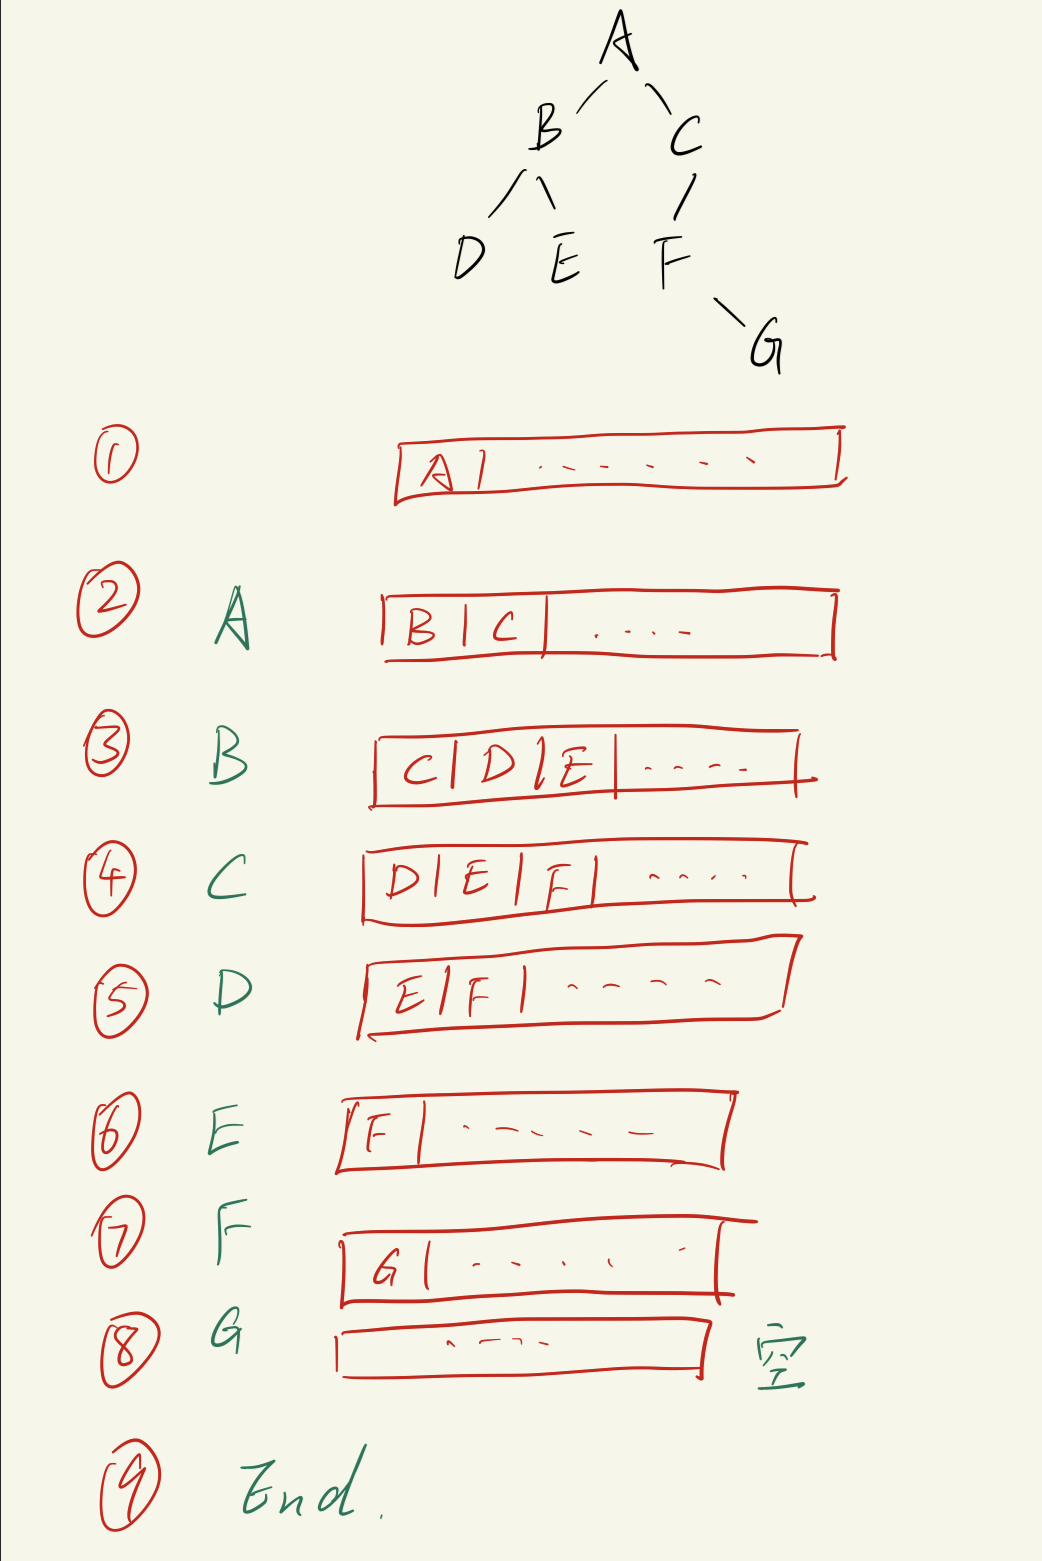 A
B C
D E F
G
① A
② A B C
③ B C D E
④ C D E F
⑤ D E F
⑥ E F
⑦ F G
⑧ G 空
⑨ End.